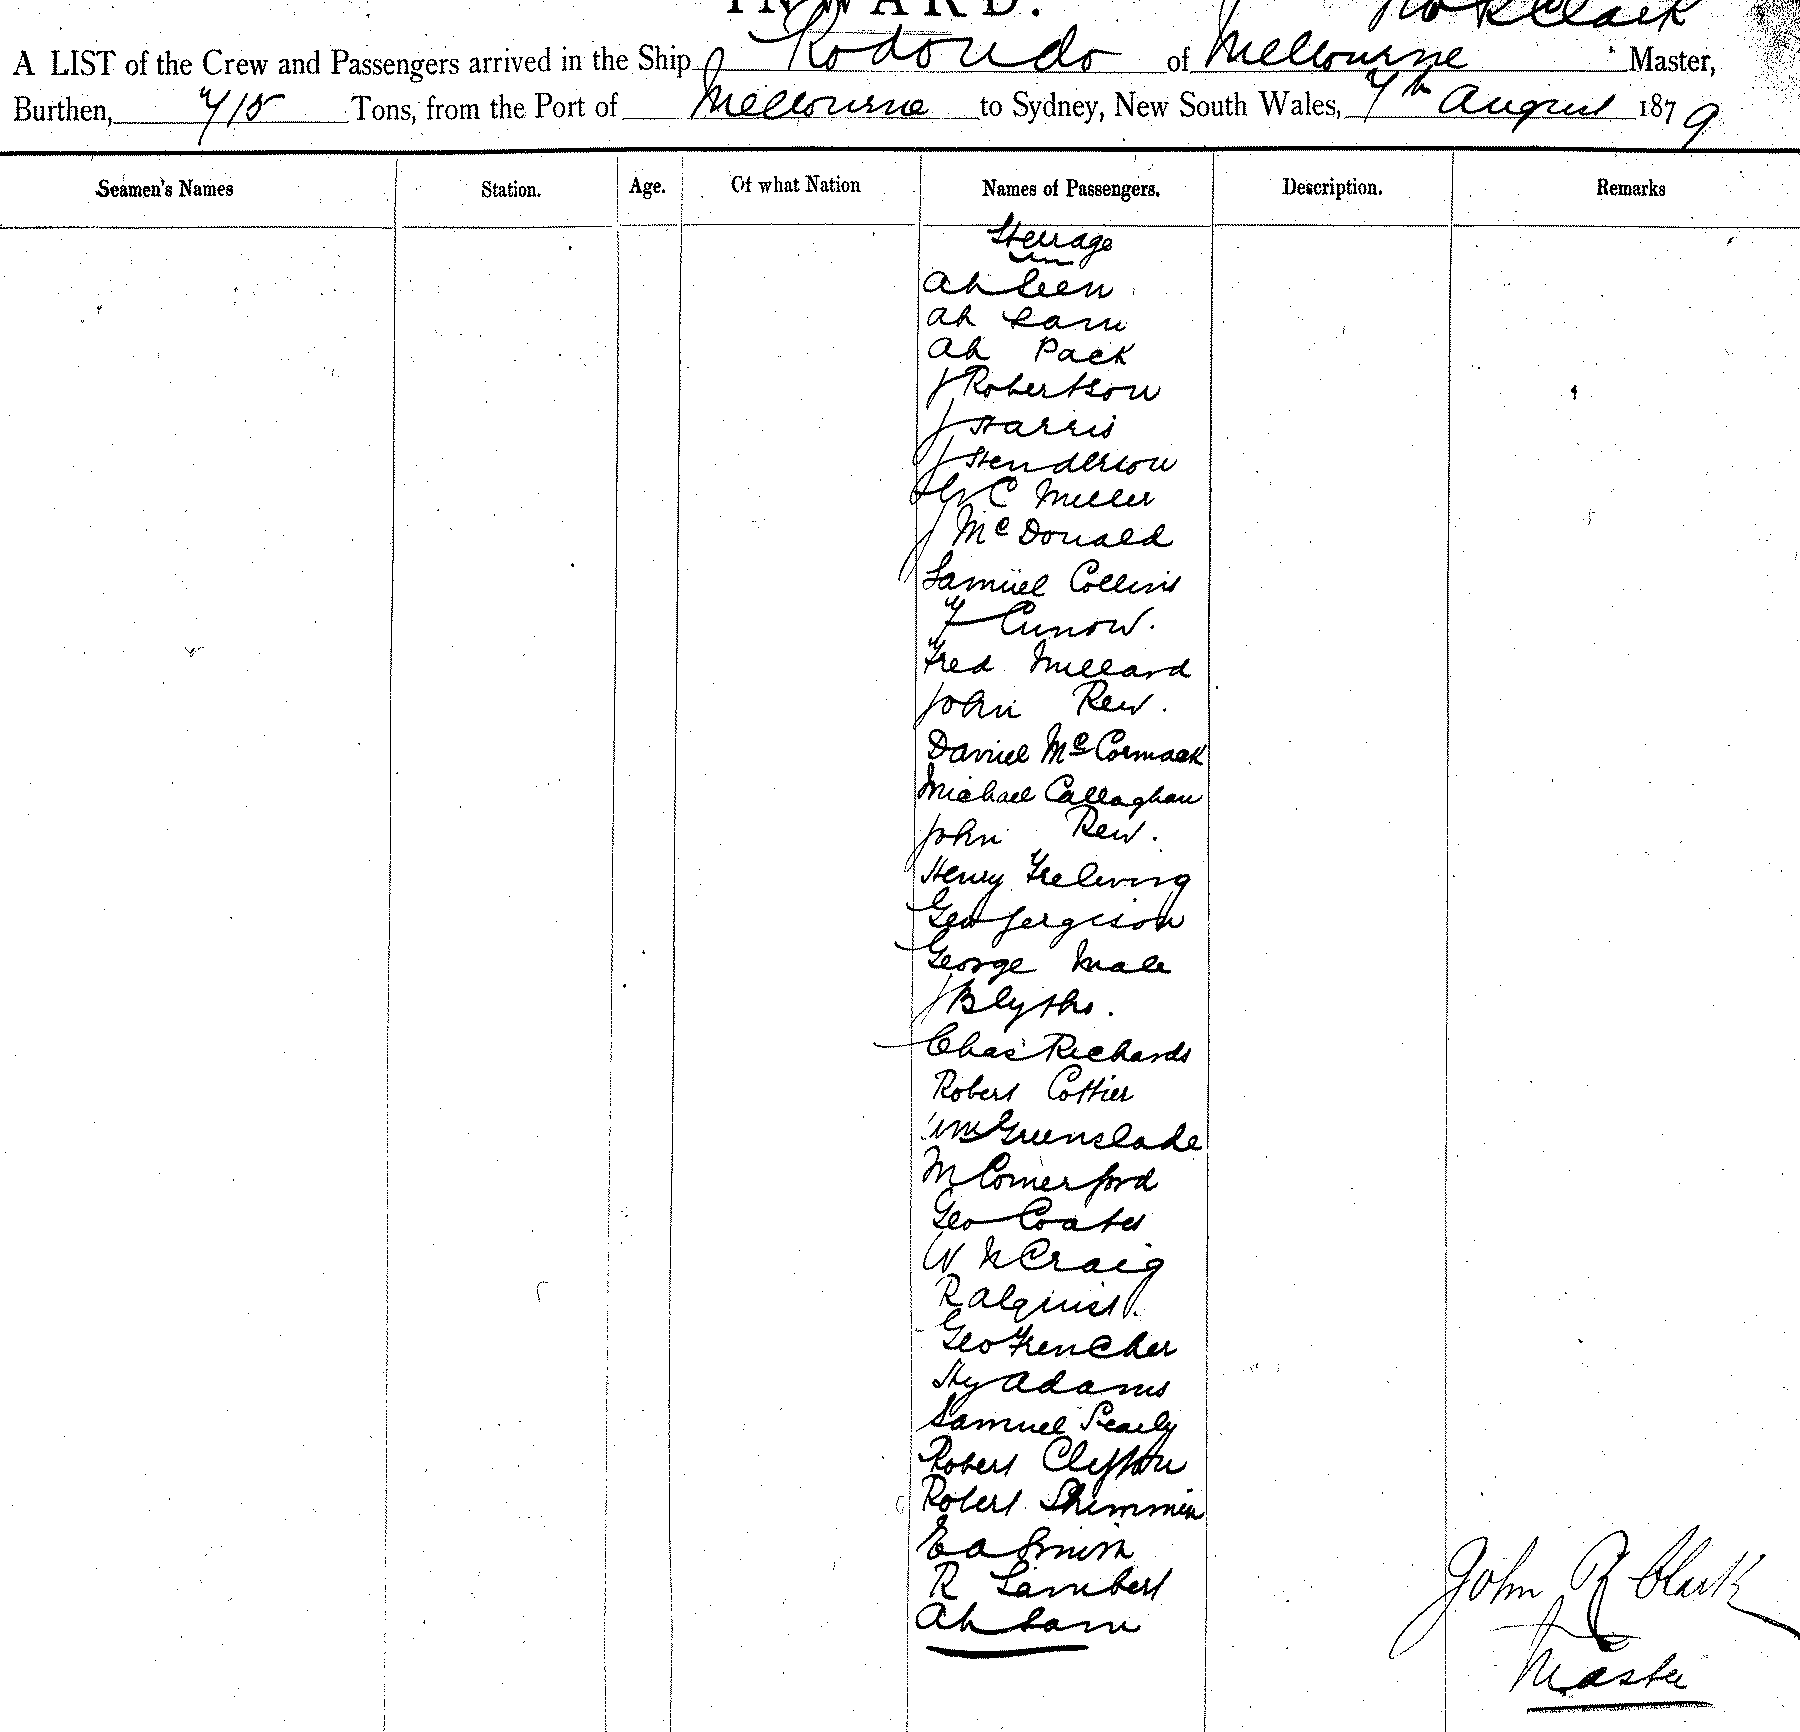 INWARD.
A LIST of the Crew and Passengers arrived in the Ship Rodondo of Melbourne Master,
Burthen, 718 Tons, from the Port of Melbourne to Sydney, New South Wales, 7th August 1879
Seamen's Names Station. Age. Of what Nation Names of Passengers. Description. Remarks
Steerage
Ah
Ah Sam
Ah Pack
J Robertson
J Harris
J Henderson
C Miller
J McDonald
Samuel Collins
F Cunow.
Fred Millard
John Rew.
Daniel McCormack
Michael Callaghan
John Rew.
Henry
Geo Jergison
George Male
J Blythe.
Chas Richards
Robert Cottier
Wm Greenslade
M Comerford
Geo Coates
W Craig
R Alquist.
Geo Frencher
Hy Adams
Samuel Searly
Robert Clifton
Robert Shimmin
E A Smith
R Lambert
Ah Sam
John R Clark
Master